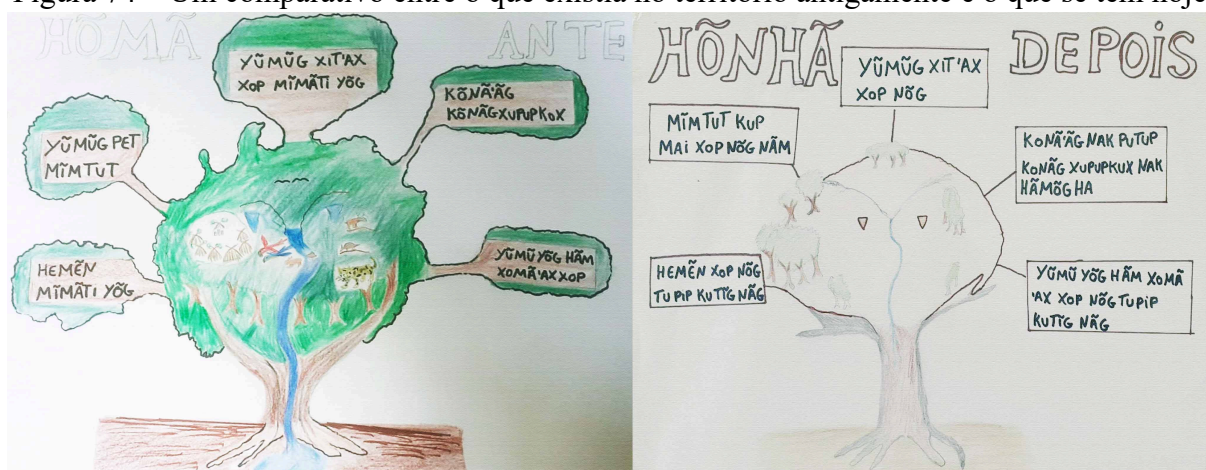 Figura 74 – Um comparativo entre o que existia no território antigamente e o que se tem hoje
HÕMÃ ANTE
YŨMŨG XIT'AX
XOP MĨMÃTI YÕG
KÕNÃ'ÃG
KÕNÃGXUPUPKUX
YŨMŨG PET
MĨMTUT
HEMẼN
MĨMÃTI YÕG
YŨMŨ YÕG HÃM
XOMÃ'AX XOP
HÕNHÃ DEPOIS
YŨMŨG XIT'AX
XOP NÕG
MĨMTUT KUP
MAI XOP NÕG NÃM
KONÃ'ÃG NAK PUTUP
KONÃG XUPUPKUX NAK
HÃMÕG HA
HEMẼN XOP NÕG
TU PIP KUTĨG NÃG
YŨMŨ YÕG HÃM XOMÃ
'AX XOP NÕG TU PIP
KUTĨG NÃG